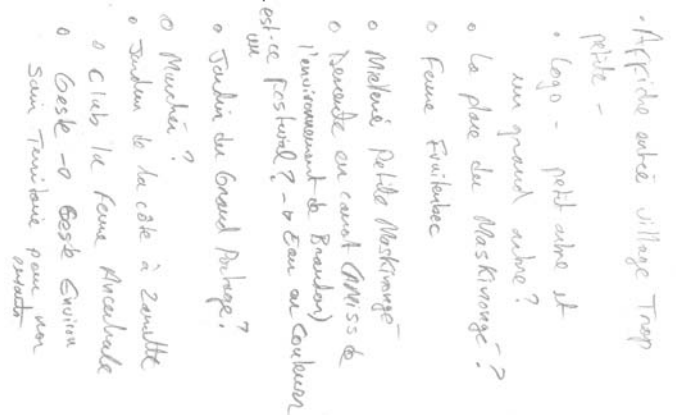 - Affiche entrée village Trop
petite -
• Logo - petit arbre et
un grand arbre?
• La place du Maskinongé?
• Ferme Fruitenbec
• Matériel Petite Maskinongé
• Descente en canot (Amiss de
l'environnement de Brandon)
est-ce un festival? → Eau en Couleurs
• Jardin du Grand Portage?
• Marché?
• Jardin de la côte à
• Club la Ferme
• Geste → Geste Environ
Sain Territoire pour nos